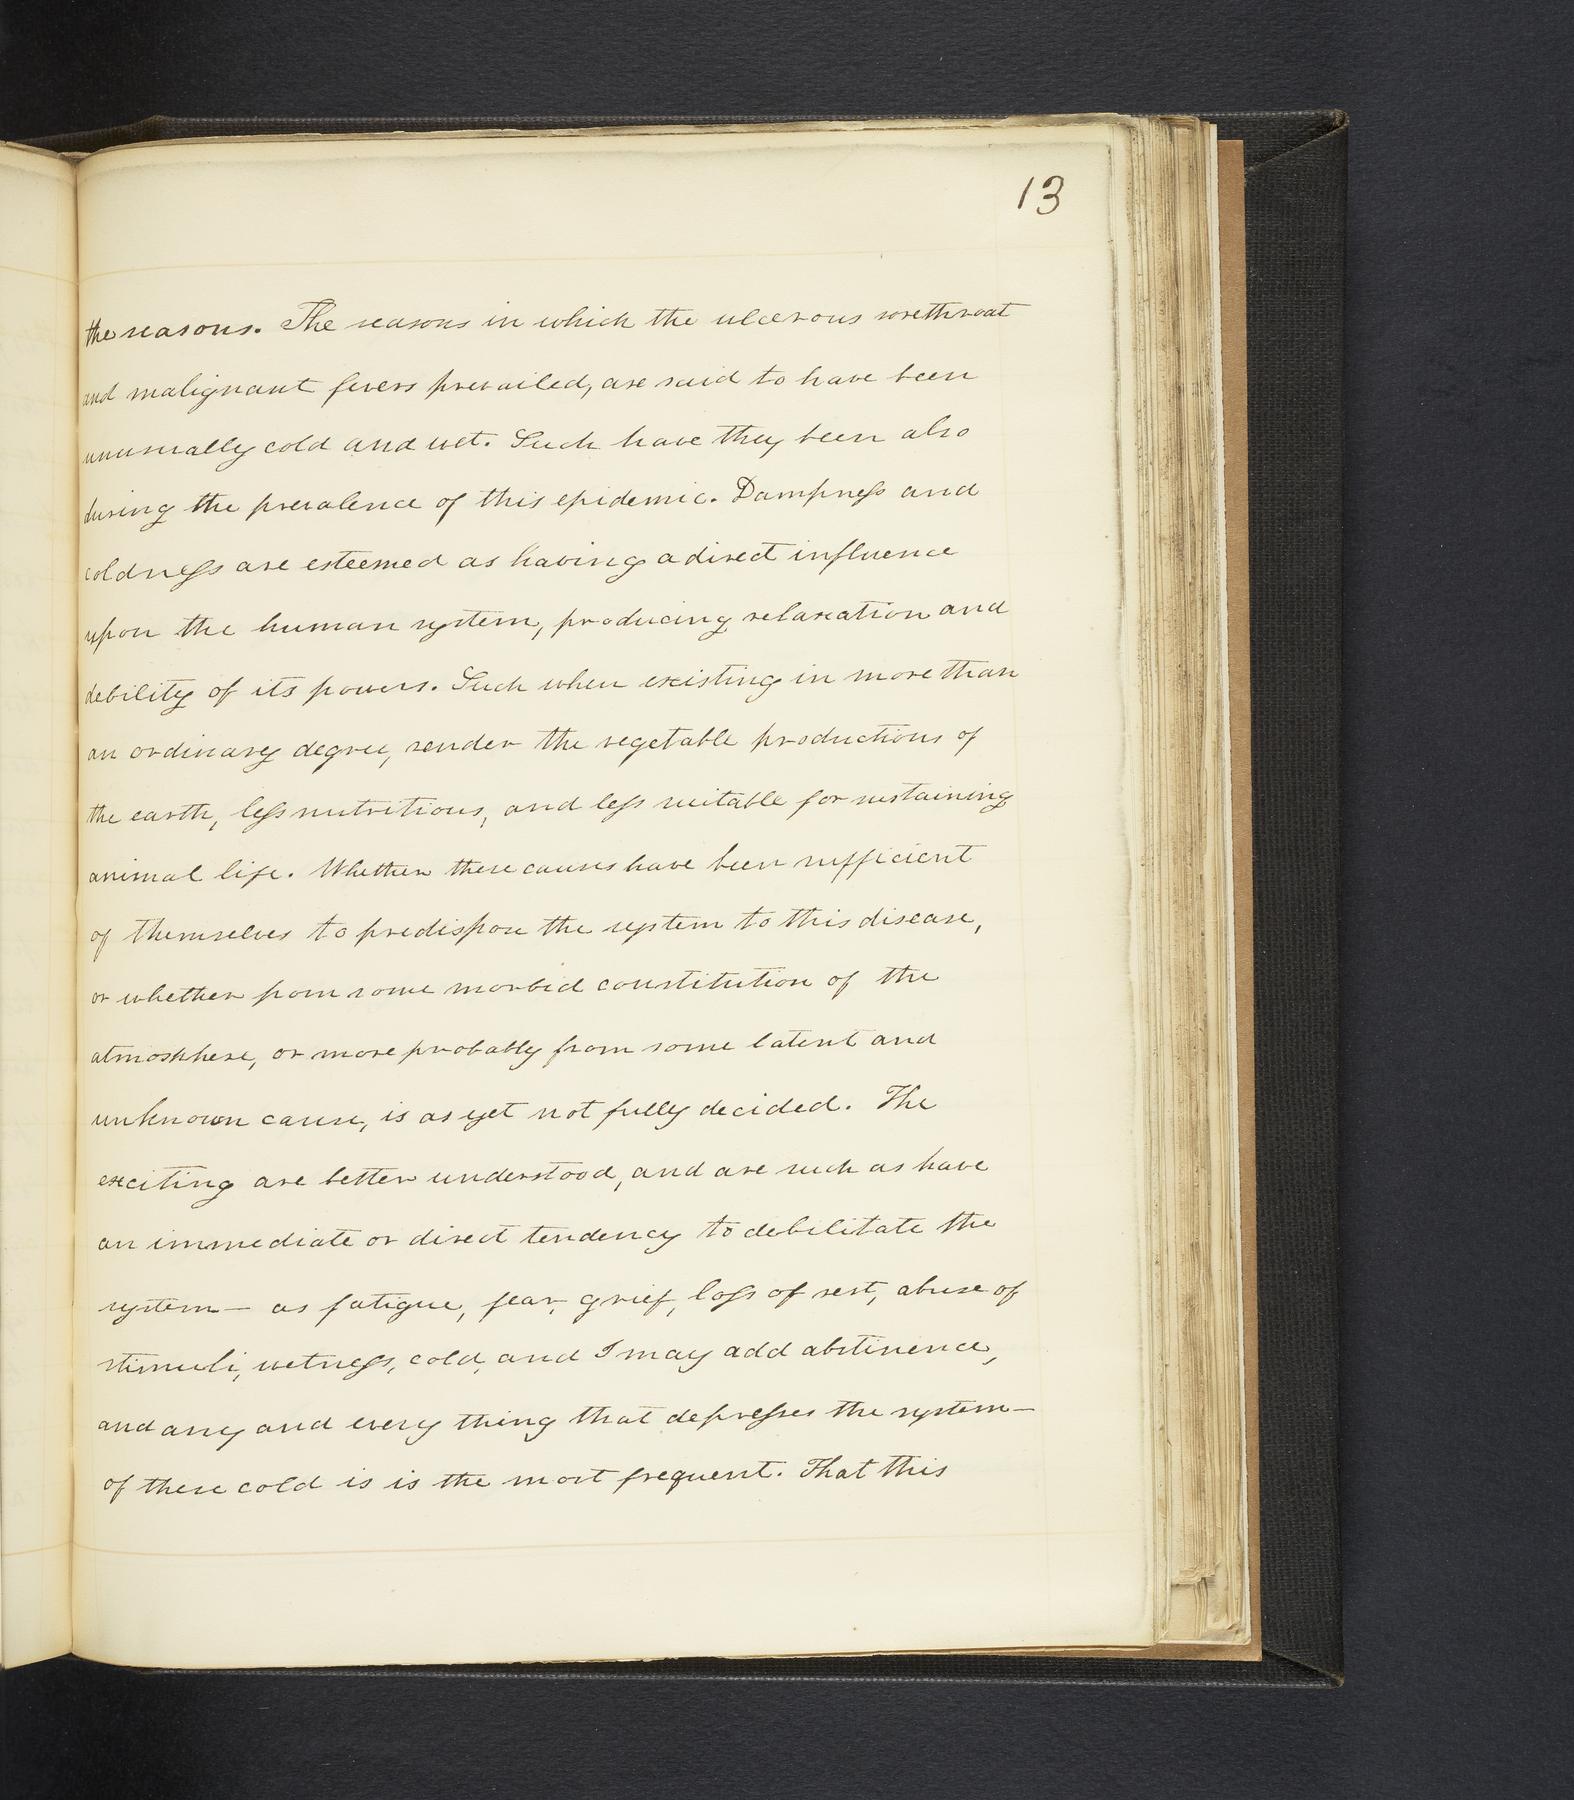 13
the seasons. The seasons in which the ulcerous sorethroat
and malignant fevers prevailed, are said to have been
unusually cold and wet. Such have they been also
during the prevalence of this epidemic. Dampness and
coldness are esteemed as having a direct influence
upon the human system, producing relaxation and
debility of its powers. Such when existing in more than
an ordinary degree, render the vegetable productions of
the earth, less nutritious, and less suitable for sustaining
animal life. Whether these causes have been sufficient
of themselves to predispose the system to this disease,
or whether from some morbid constitution of the
atmosphere, or more probably from some latent and
unknown cause, is as yet not fully decided. The
exciting are better understood, and are such as have
an immediate or direct tendency to debilitate the
system — as fatigue, fear, grief, loss of rest, abuse of
stimuli, wetness, cold, and I may add abstinence,
and any and every thing that depresses the system —
of these cold is is the most frequent. That this